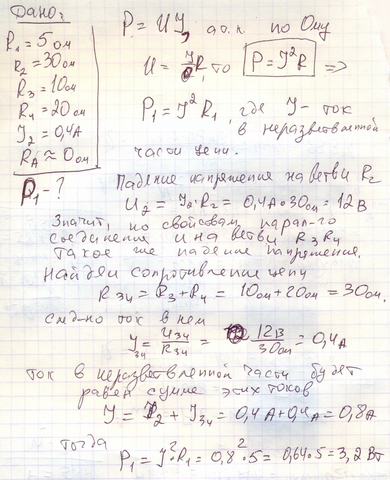 Дано:
R1 = 5 ом
R2 = 30 ом
R3 = 10 ом
R4 = 20 ом
I2 = 0,4 А
RA ≈ 0 ом
P1 - ?
P = UI, а т.к по Ому
U = IR, то P = I²R =>
P1 = I²R1, где I - ток
в неразветвленной
части цепи.
Падение напряжения на ветви R2
U2 = I2·R2 = 0,4А·30ом = 12 В
Значит, по свойствам парал-го
соединения и на ветви R3R4
такое же падение напряжения.
Найдём сопротивление цепи
R34 = R3 + R4 = 10ом + 20ом = 30ом.
след-но ток в нем
I34 = U34/R34 = 12В/30ом = 0,4А
ток в неразветвленной части будет
равен сумме этих токов
I = I2 + I34 = 0,4А + 0,4А = 0,8А
тогда
P1 = I²·R1 = 0,8²·5 = 0,64·5 = 3,2 Вт